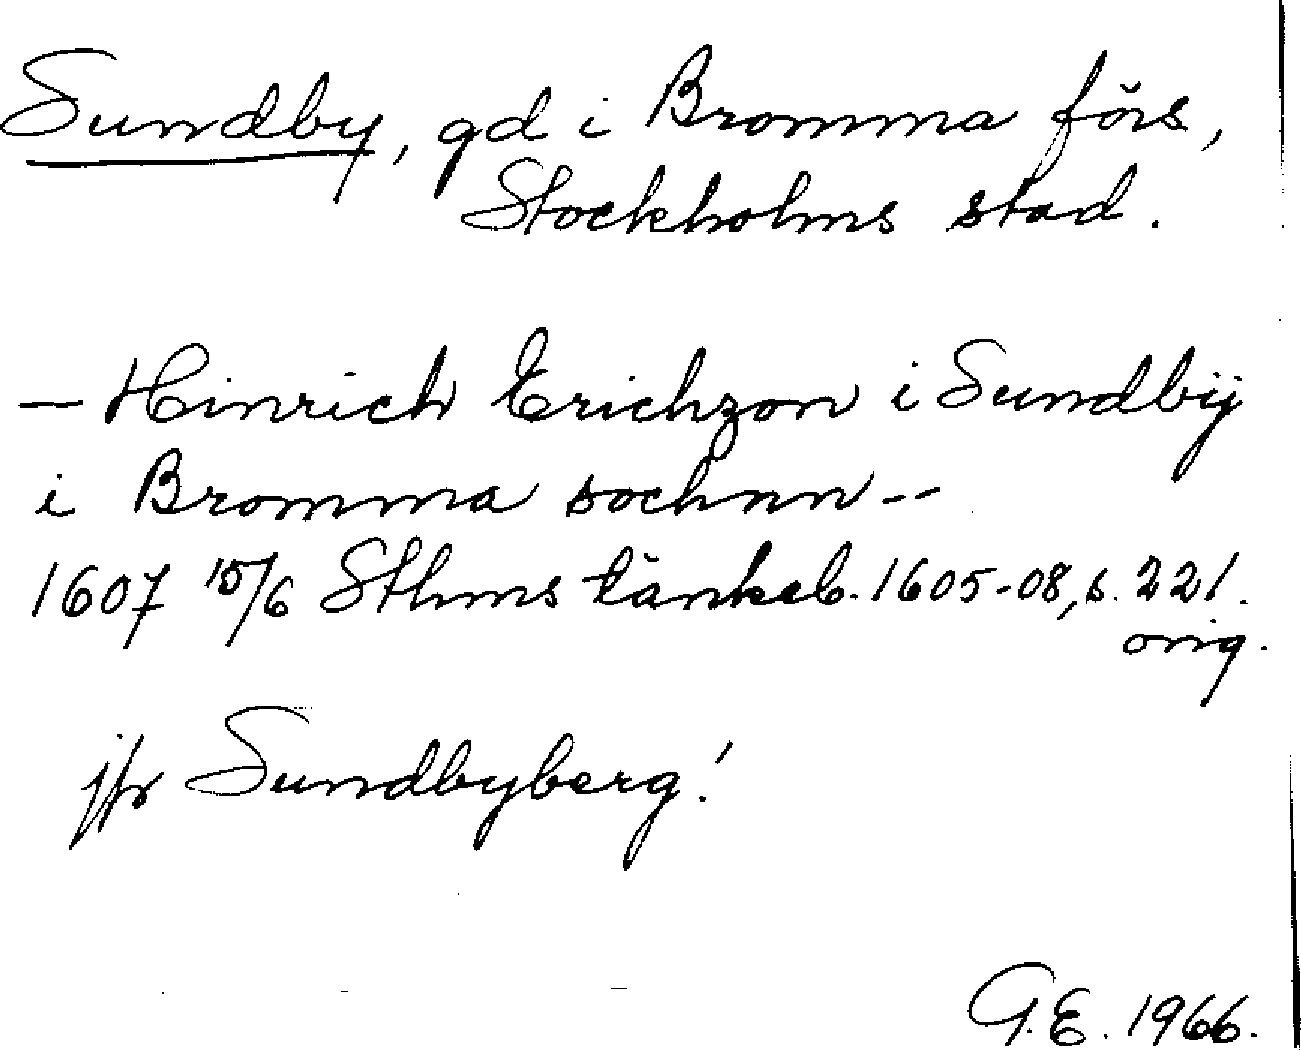 Sundby, gd i Bromma förs,
Stockholms stad.
— Hinrich Erichzon i Sundbÿ
i Bromma sochnn--
1607 15/6 Sthms tänkeb. 1605-08, s. 221.
orig.
jfr Sundbyberg!
G.E. 1966.